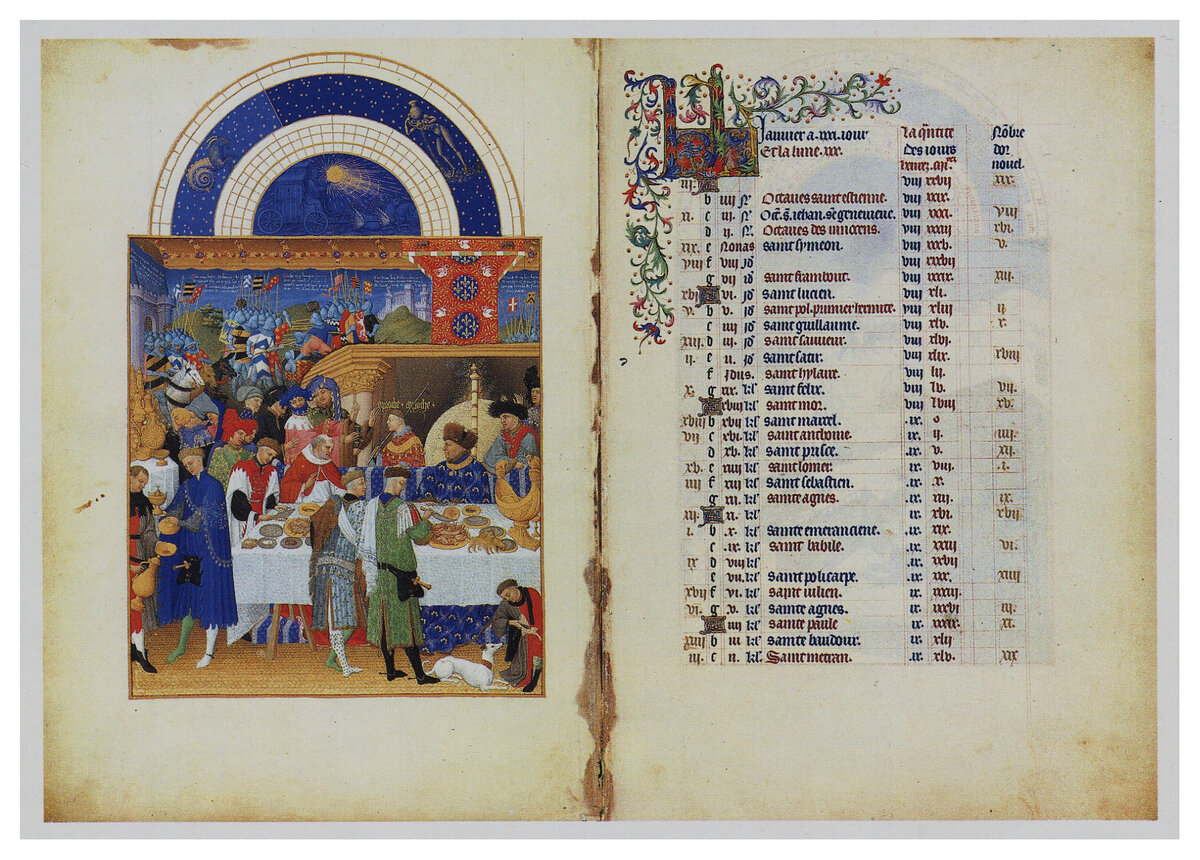 approche + approche
Januier a .xxxi. iour La q̃ntite Nõbre
Et la lune .xxx. des iours dor
nouel.
iii. viii xxvii xix.
b iiii Nõ Octaues saint estienne. viii xxix.
xi. c iii. Nõ Oct̃. S. iehan. Ste geneuieue. viii xxxi. viii
d ii. Nõ Octaues des innocens. viii xxxiii xvi.
xix. e Nonas saint symeon. viii xxxv. v.
viii f viii id viii xxxvii
g vii id saint frambout. viii xxxix. xiii.
xvi vi. id saint lucien. viii xli.
v. b v. id saint pol. premier hermite. viii xliii ii
c iiii id saint guillaume. viii xlv. x.
xiii. d iii. id saint sauueur. viii xlvi.
ii. e ii. id saint satir. viii xlix. xviii
f Idus. saint hylaire. viii lii.
x. g xix. kl saint felix. viii lv. vii.
xviii kl saint mor. viii lviii xv.
xviii b xvii kl saint marcel. .ix. o
vii c xvi. kl saint anthoine. ix. ii. iiii.
d xv. kl saint prisce. .ix. v. xii.
xv. e xiiii kl saint lomer. ix. viii. .i.
iiii f xiii kl saint sebastien. ix. x.
g xii kl sainte agnes. ix. xiii. ix.
xii. xi. kl ix. xvi. xvii
i. b .x. kl sainte emeranciene. ix. xix.
c .ix. kl saint babile. .ix. xxiii vi.
ix d viii kl ix. xxvii
e vii. kl saint policarpe. ix. xxx. xiiii
xvii f vi. kl saint iulien. ix. xxxiii.
vi. g v. kl sainte agnes. ix. xxxvi iii.
iiii kl sainte paule ix. xxxix. xi.
xiiii b iii kl sainte baudour. ix. xlii
iii. c ii. kl Saint metran. .ix. xlv. xix